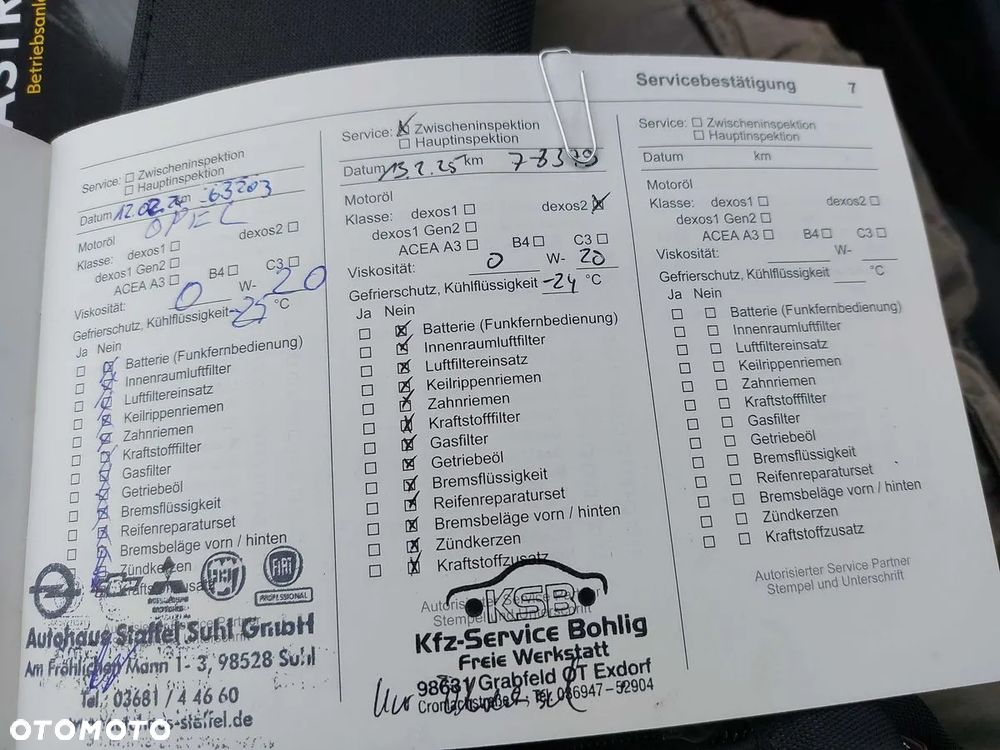 ASTR
Betriebsanle
Servicebestätigung 7
Service: Zwischeninspektion
Hauptinspektion
Datum 12.02. km 63203
OPEL
Motoröl
Klasse: dexos1 dexos2
dexos1 Gen2
ACEA A3 B4 C3
Viskosität: 0 W- 20
Gefrierschutz, Kühlflüssigkeit -25 °C
Ja Nein
Batterie (Funkfernbedienung)
Innenraumluftfilter
Luftfiltereinsatz
Keilrippenriemen
Zahnriemen
Kraftstofffilter
Gasfilter
Getriebeöl
Bremsflüssigkeit
Reifenreparaturset
Bremsbeläge vorn / hinten
Zündkerzen
Kraftstoffzusatz
MITSUBISHI MOTORS
FIAT
PROFESSIONAL
Autohaus Staffel Suhl GmbH
Am Fröhlichen Mann 1-3, 98528 Suhl
Tel.: 03681 / 4 46 60
-staffel.de
Service: Zwischeninspektion
Hauptinspektion
Datum 13.2.25 km 78379
Motoröl
Klasse: dexos1 dexos2
dexos1 Gen2
ACEA A3 B4 C3
Viskosität: 0 W- 20
Gefrierschutz, Kühlflüssigkeit -24 °C
Ja Nein
Batterie (Funkfernbedienung)
Innenraumluftfilter
Luftfiltereinsatz
Keilrippenriemen
Zahnriemen
Kraftstofffilter
Gasfilter
Getriebeöl
Bremsflüssigkeit
Reifenreparaturset
Bremsbeläge vorn / hinten
Zündkerzen
Kraftstoffzusatz
KSB
Kfz-Service Bohlig
Freie Werkstatt
98631 Grabfeld OT Exdorf
Tel. 036947-52904
Service: Zwischeninspektion
Hauptinspektion
Datum km
Motoröl
Klasse: dexos1 dexos2
dexos1 Gen2
ACEA A3 B4 C3
Viskosität: W-
Gefrierschutz, Kühlflüssigkeit °C
Ja Nein
Batterie (Funkfernbedienung)
Innenraumluftfilter
Luftfiltereinsatz
Keilrippenriemen
Zahnriemen
Kraftstofffilter
Gasfilter
Getriebeöl
Bremsflüssigkeit
Reifenreparaturset
Bremsbeläge vorn / hinten
Zündkerzen
Kraftstoffzusatz
Autorisierter Service Partner
Stempel und Unterschrift
OTOMOTO